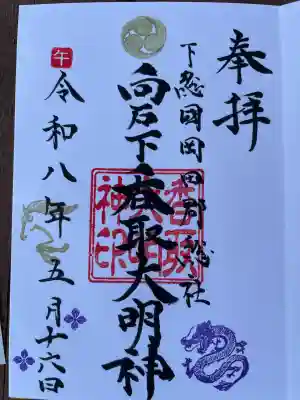 奉拝
下総国岡田郡総社
向石下香取大明神
香取大明神印
令和八年五月十六日
午